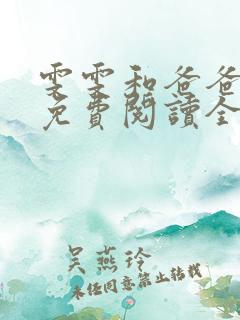 雯雯和爸爸
免費閱讀全
吴燕玲
未经同意禁止转载